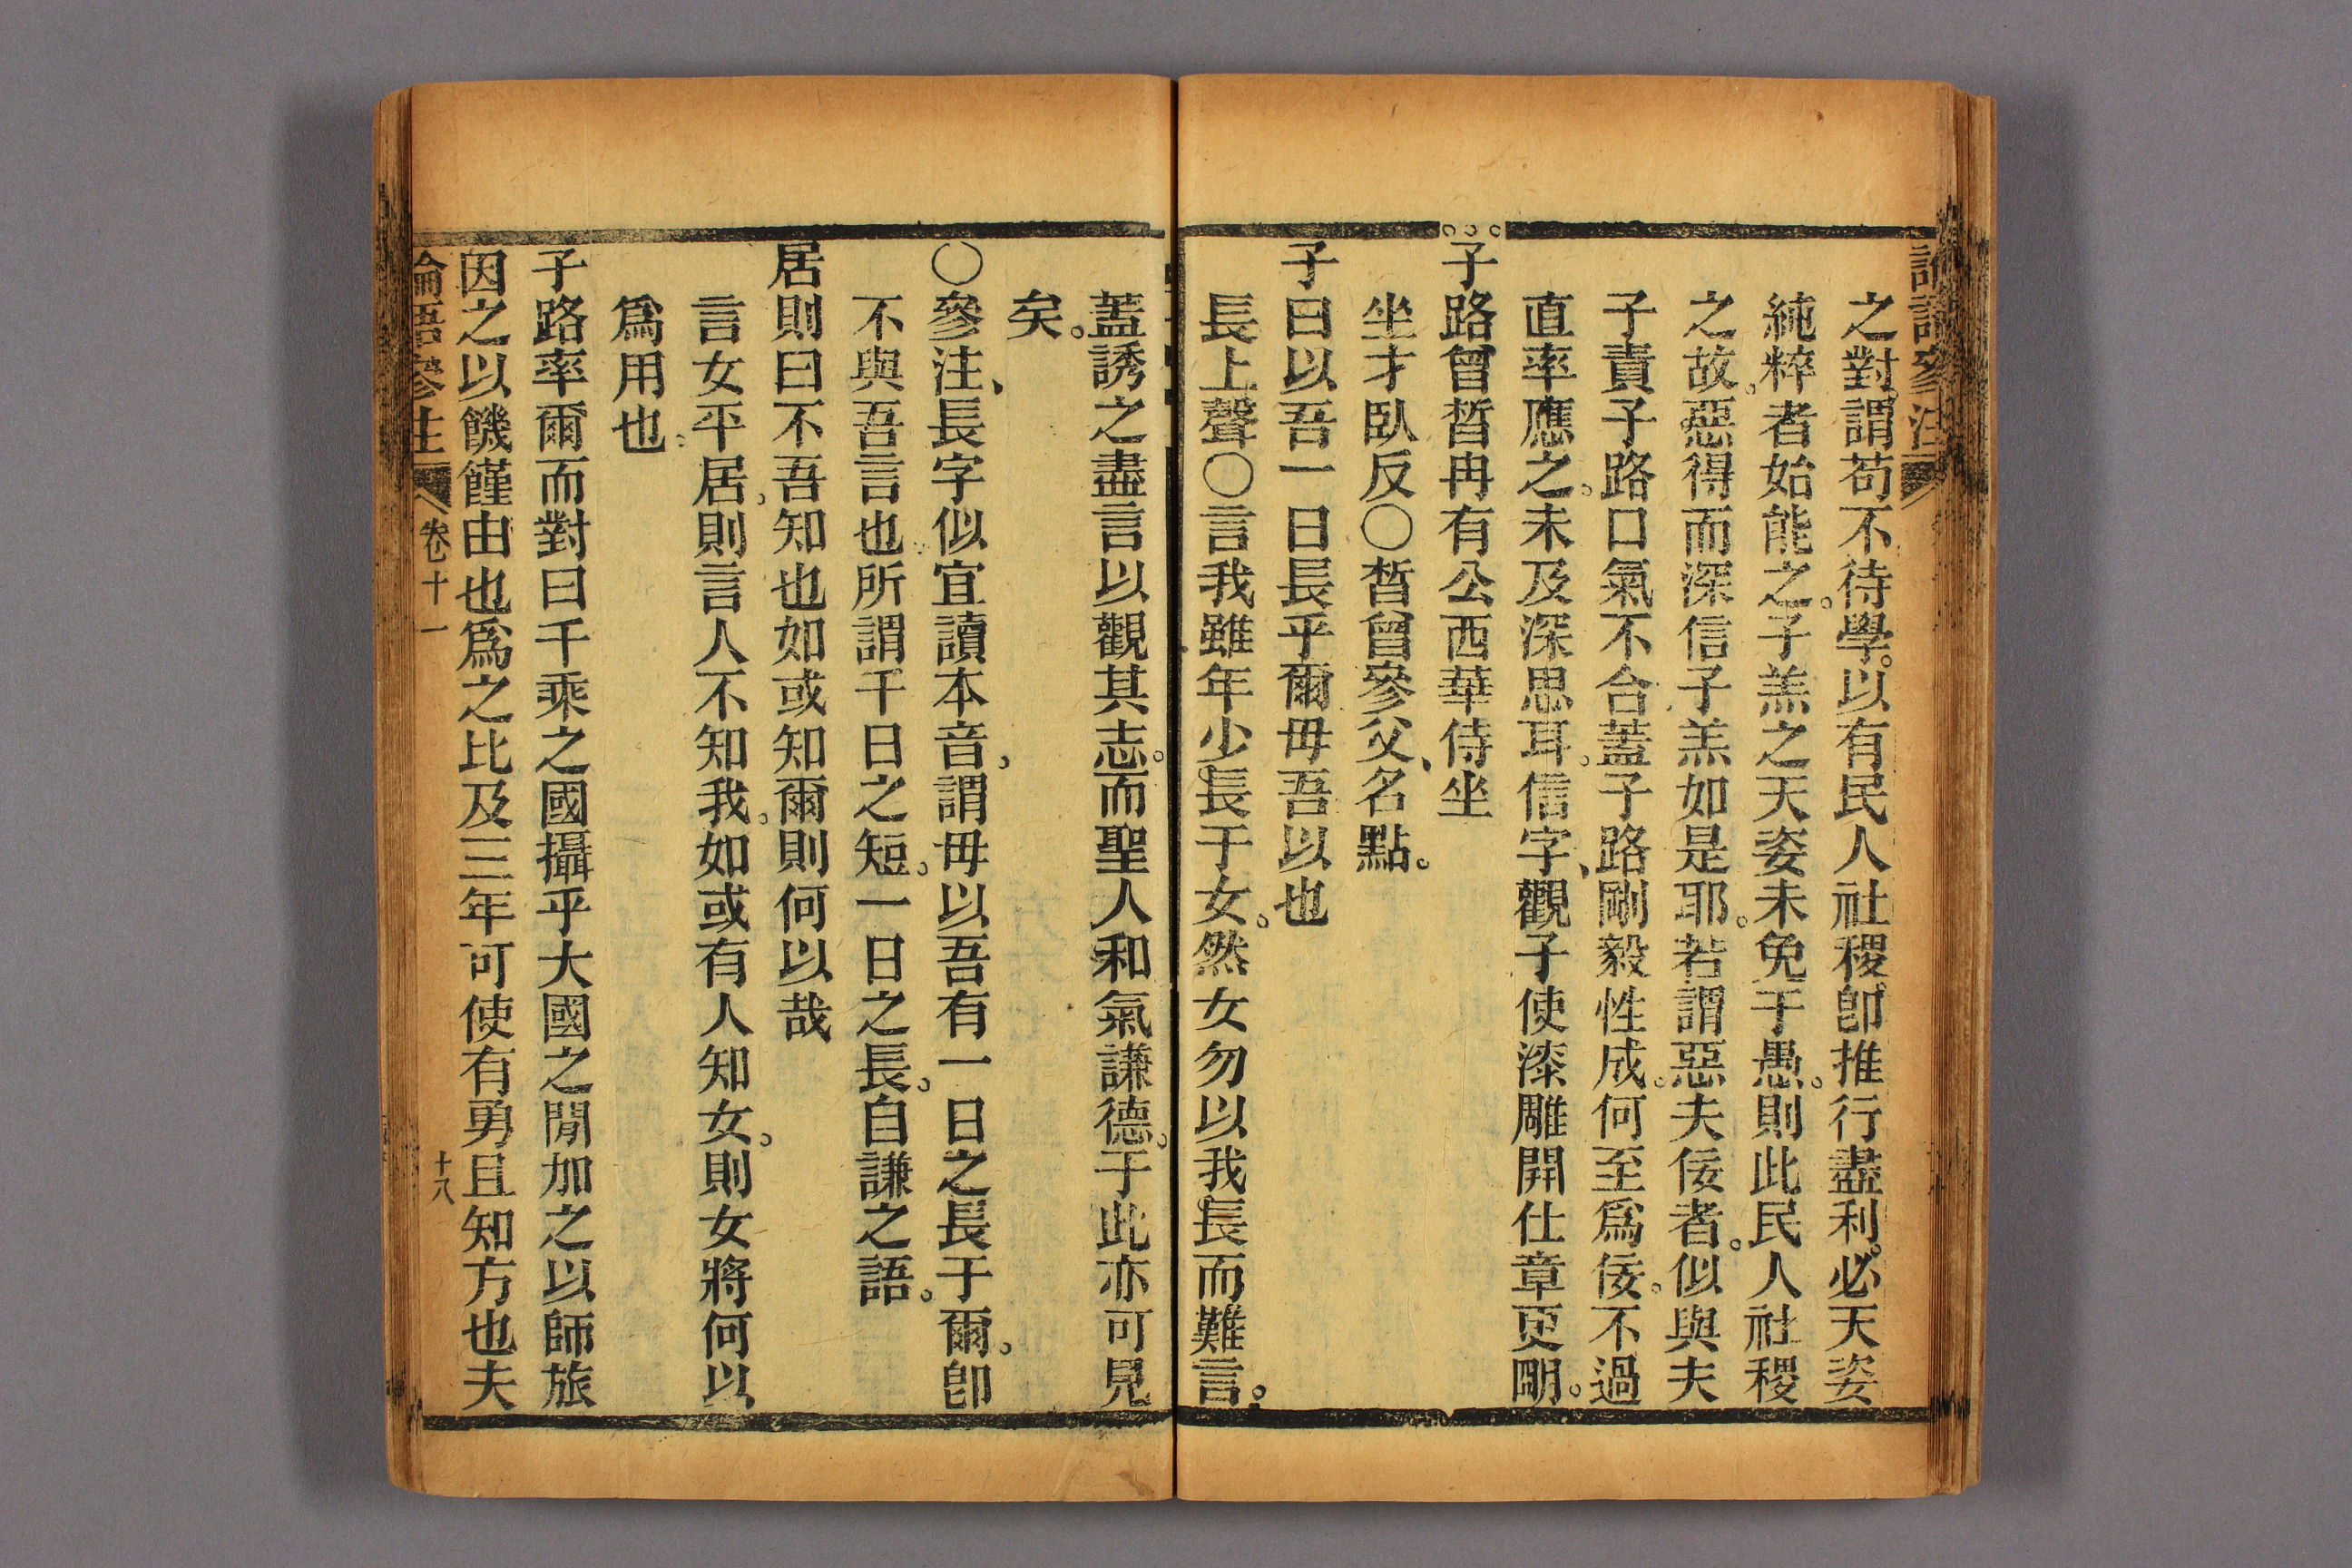 論語參注
之對謂苟不待學。以有民人社稷卽推行盡利。必天姿
純粹者始能之。子羔之天姿未免于愚。則此民人社稷
之故。惡得而深信子羔如是耶。若謂惡夫佞者。似與夫
子責子路口氣不合蓋子路剛毅性成。何至爲佞。不過
直率應之。未及深思耳。信字、觀子使漆雕開仕章更明。
子路曾晳冉有公西華侍坐
坐才臥反〇晳曾參父、名點。
子曰以吾一日長乎爾毋吾以也
長上聲〇言我雖年少長于女。然女勿以我長而難言。
蓋誘之盡言以觀其志。而聖人和氣謙德。于此亦可見
矣。
〇參注、長字似宜讀本音、謂毋以吾有一日之長于爾。卽
不與吾言也。所謂千日之短。一日之長。自謙之語。
居則曰不吾知也如或知爾則何以哉
言女平居、則言人不知我。如或有人知女。則女將何以
爲用也。
子路率爾而對曰千乘之國攝乎大國之閒加之以師旅
因之以饑饉由也爲之比及三年可使有勇且知方也夫
論語參注 卷十一 十八